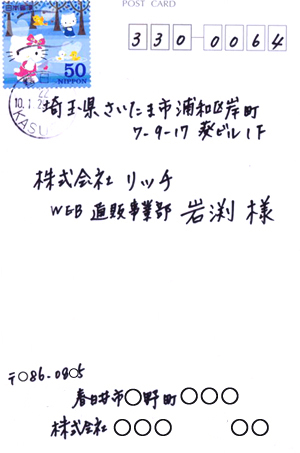 POST CARD
日本郵便
50
NIPPON
10.1.2
KASU
330-0064
埼玉県さいたま市浦和区岸町
7-9-17 葵ビル1F
株式会社 リッチ
WEB 直販事業部 岩渕 様
〒○86-08○5
春日井市○野町○○○
株式会社 ○○○ ○○